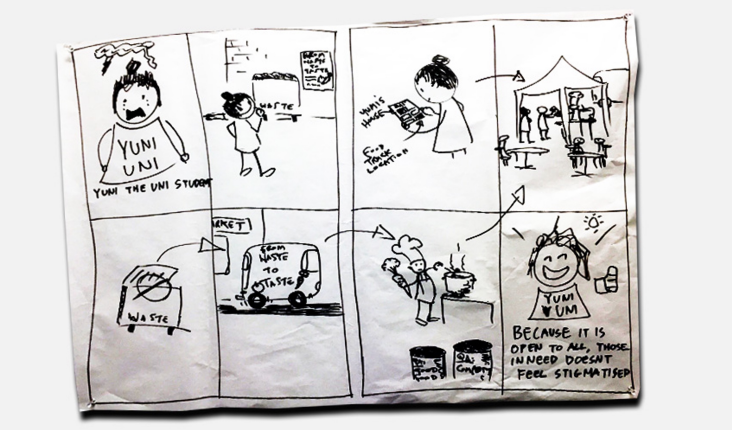 YUNI
UNI
YUNI THE UNI STUDENT
FROM
WASTE
TO
TASTE
WASTE
YUNI'S
HOUSE
FOOD
TRUCK
LOCATION
WASTE
ARKET
FROM
WASTE
TO
TASTE
YUNI
YUM
BECAUSE IT IS
OPEN TO ALL, THOSE
IN NEED DOESNT
FEEL STIGMATISED